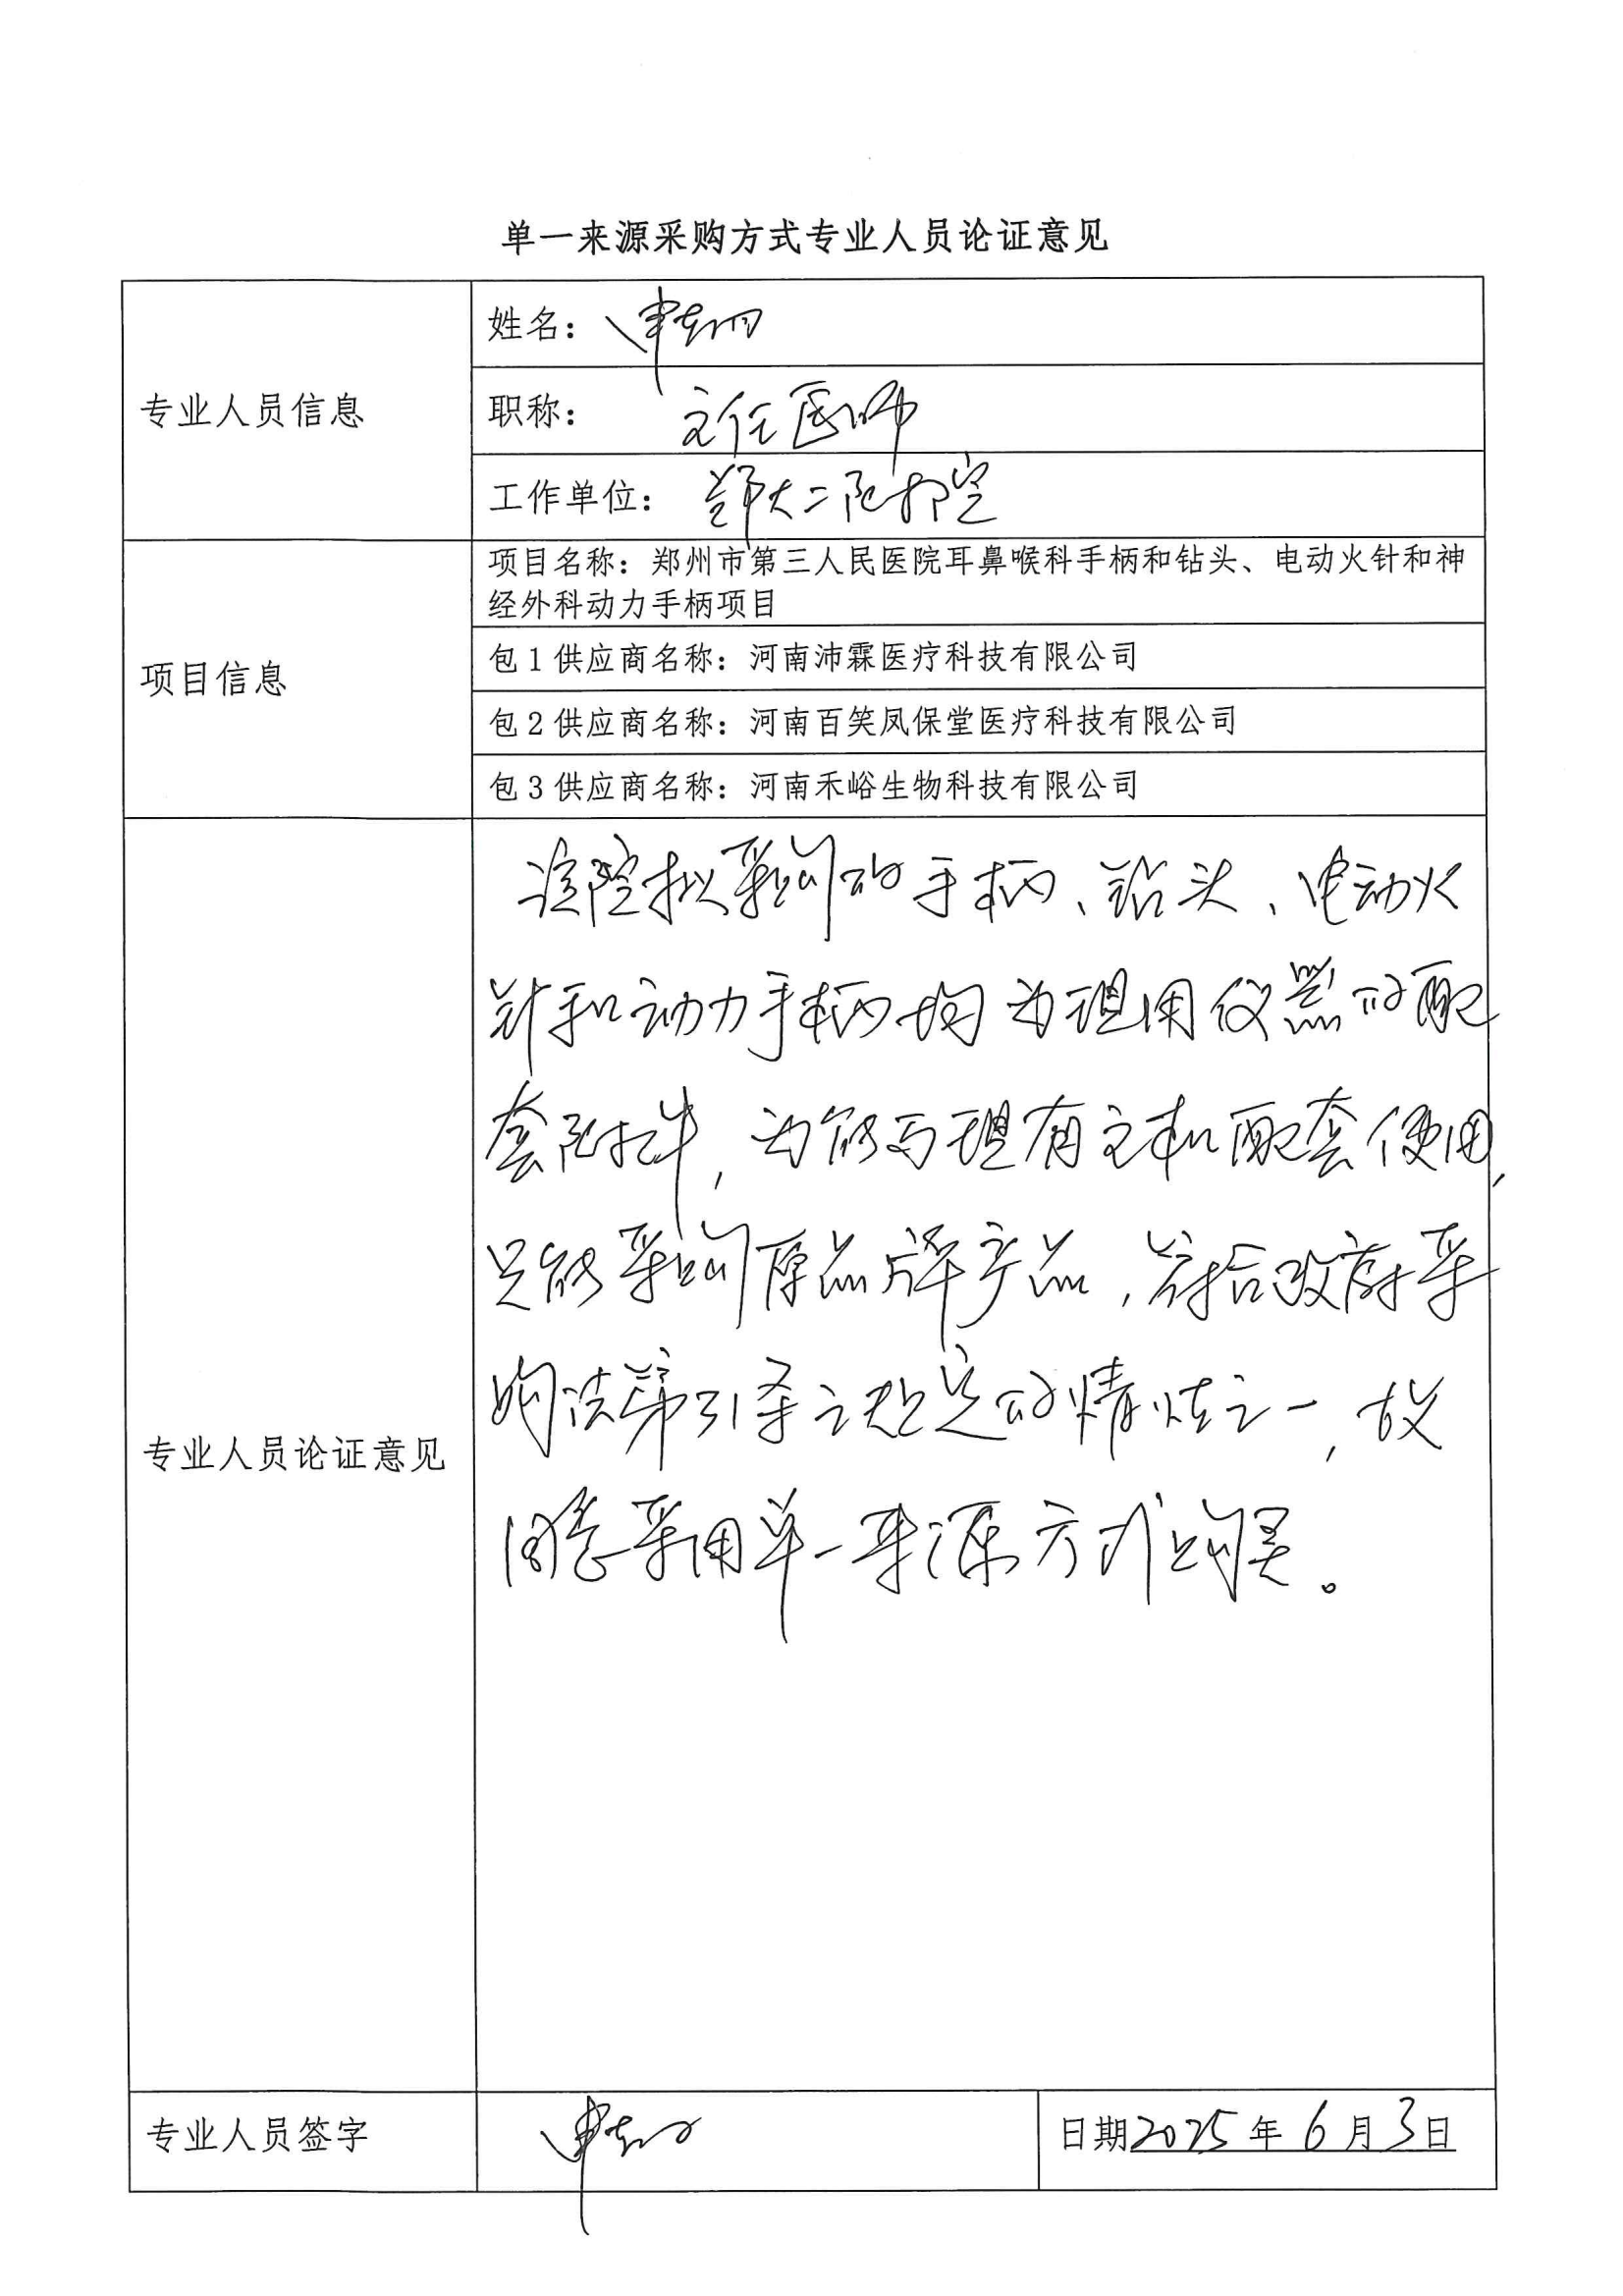 单一来源采购方式专业人员论证意见
专业人员信息
姓名：申
职称：主任医师
工作单位：郑大二附院
项目信息
项目名称：郑州市第三人民医院耳鼻喉科手柄和钻头、电动火针和神
经外科动力手柄项目
包1供应商名称：河南沛霖医疗科技有限公司
包2供应商名称：河南百笑凤保堂医疗科技有限公司
包3供应商名称：河南禾峪生物科技有限公司
专业人员论证意见
该院拟采购的手柄、钻头、电动火
针和动力手柄均为现用仪器的配
套附件，为能与现有主机配套使用，
只能采购原品牌产品，符合政府采
购法第31条之规定的情炶之一，故
同意采用单一来源方式购买。
专业人员签字
申
日期2025年6月3日